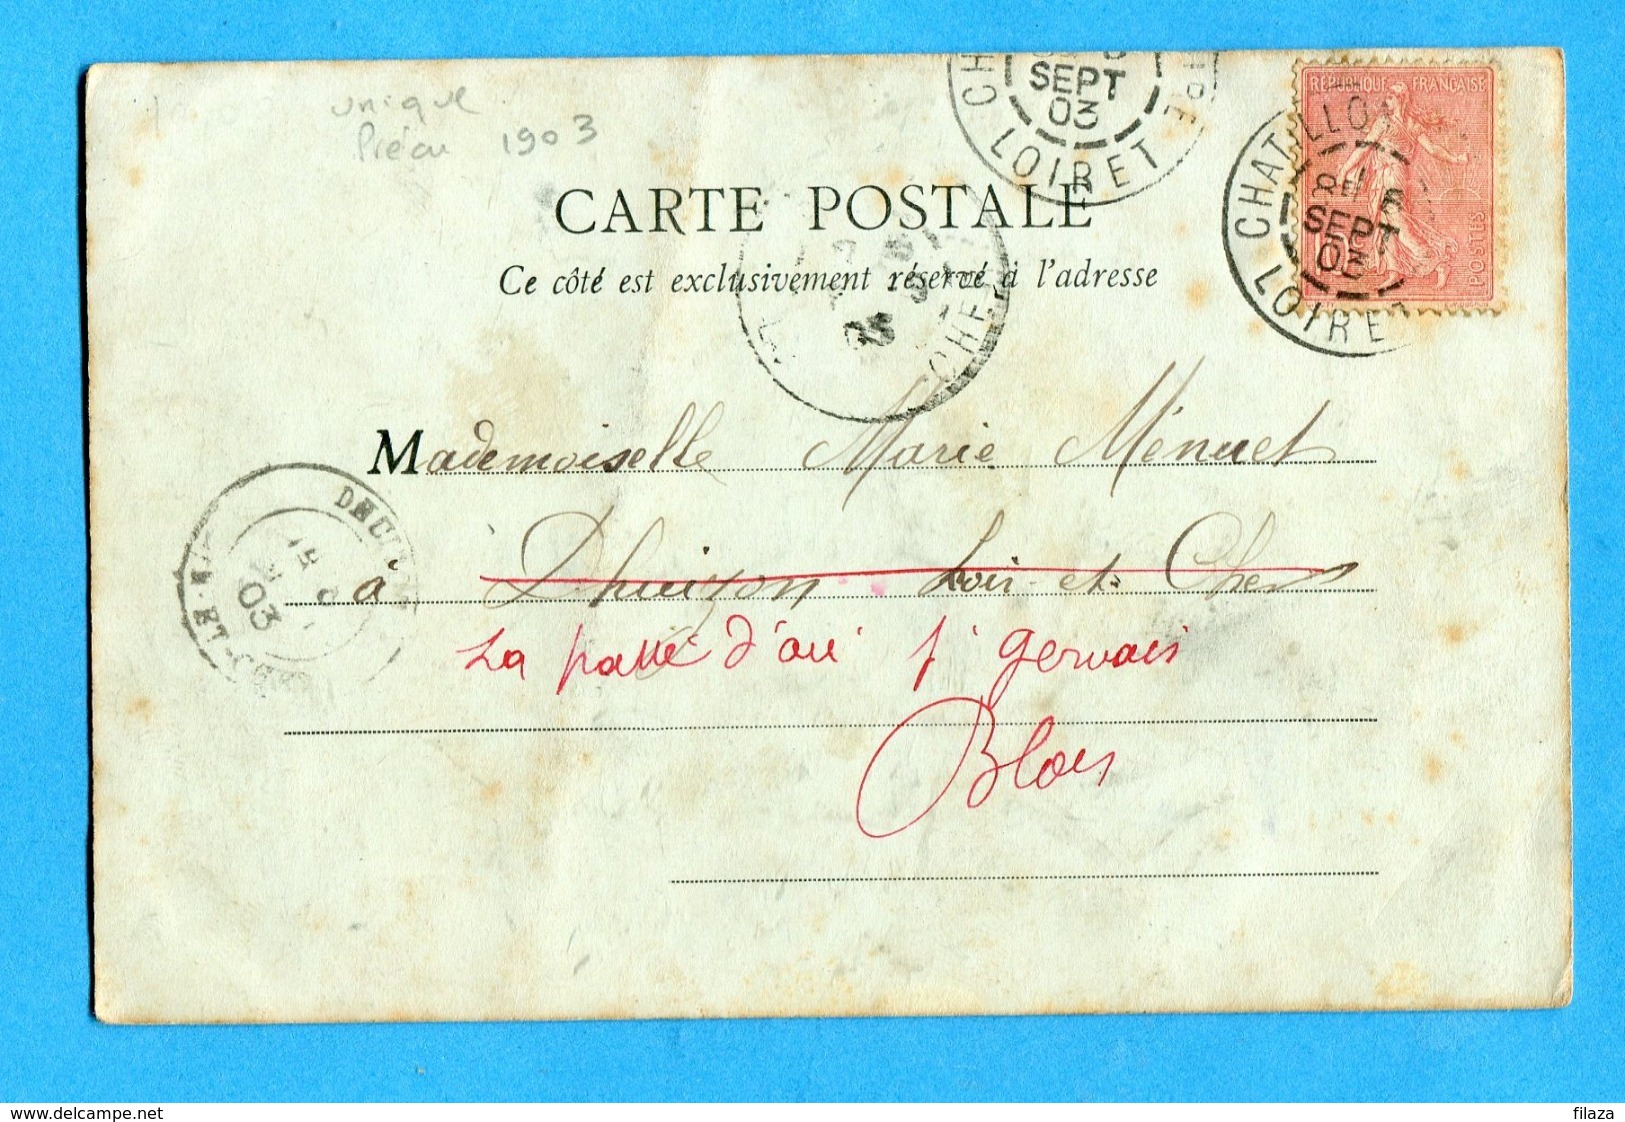 unique
Précu 1903
SEPT
03
LOIRET
REPUBLIQUE FRANÇAISE
POSTES
CHATILLON
8E
SEPT
03
LOIRET
CARTE POSTALE
Ce côté est exclusivement réservé à l'adresse
03
CHER
Mademoiselle Marie Ménuet
à Dhuizon Loir-et-Cher
La patte d'oie St Gervais
Blois
03
ET-CHER
www.delcampe.net
filaza